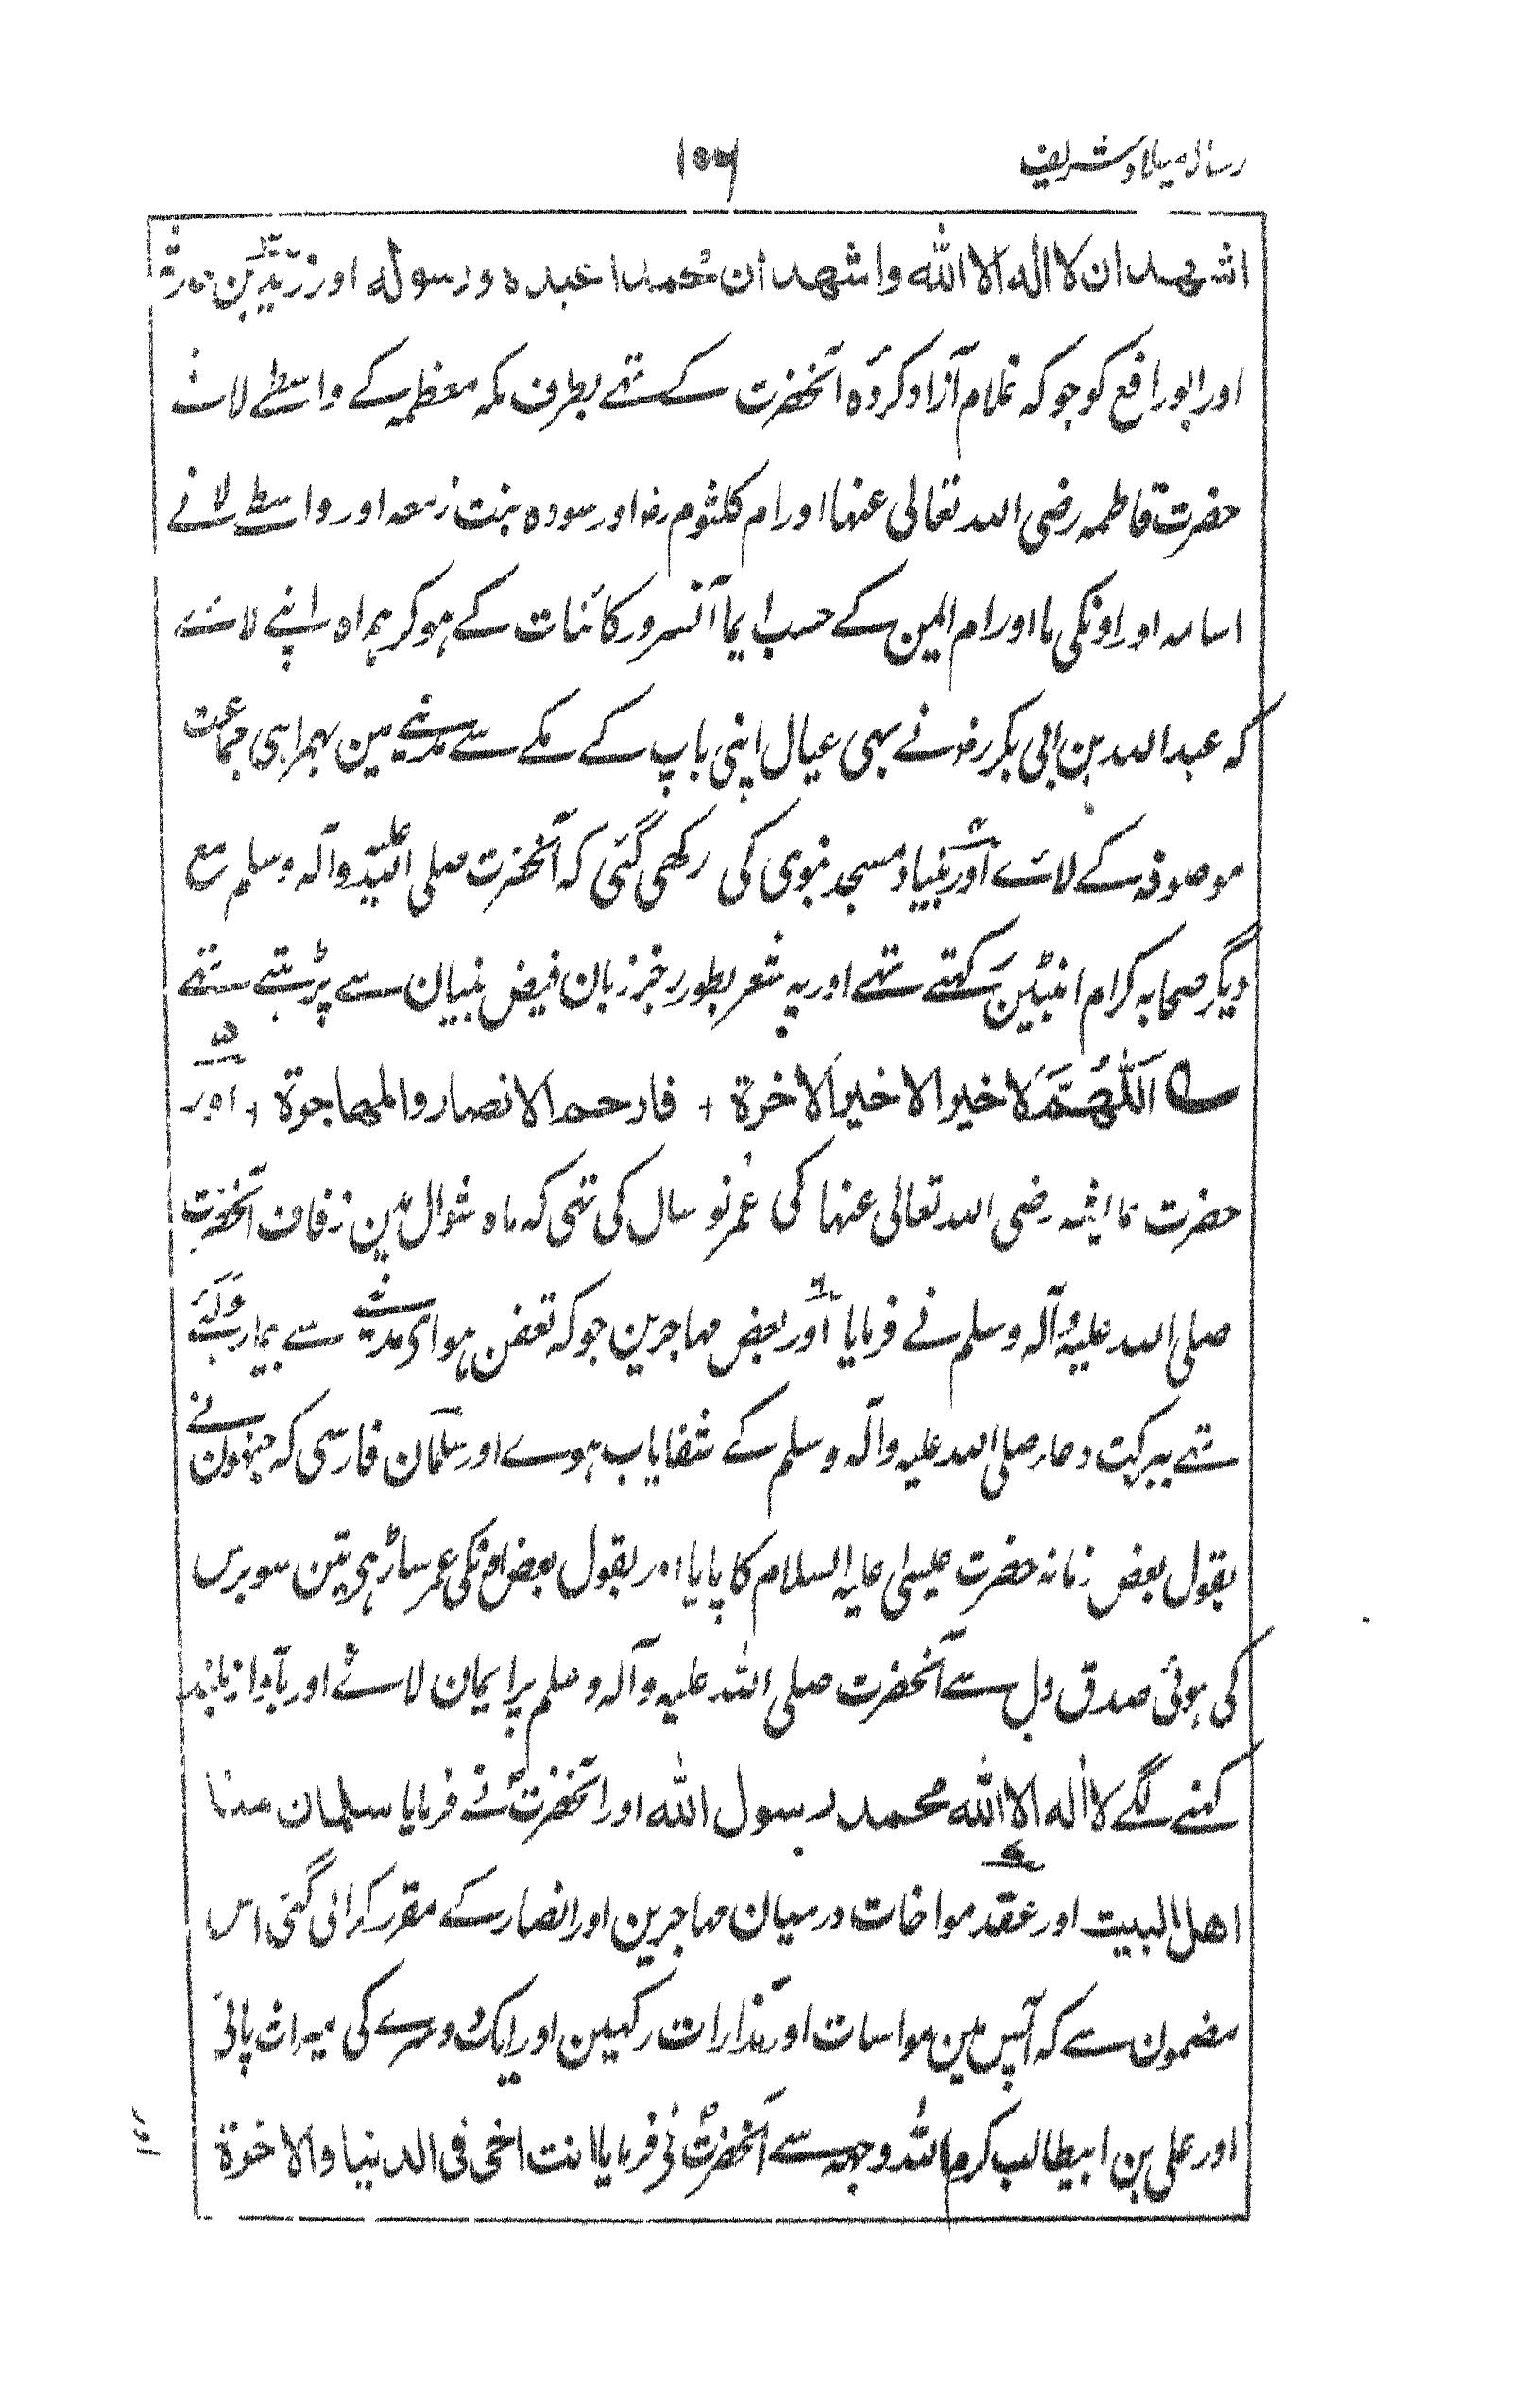 رسالہ میلاد شریف
۱۵۶
اشہد ان لا الہ الا اللہ واشھد ان محمدا عبدہ ورسولہ اور زید بن حارثہ
اور ابورافع کو جو کہ غلام آزاد کردہ آنحضرت کے تہے بطرف مکہ معظمہ کے واسطے لانے
حضرت فاطمہ رضی اللہ تعالی عنہا اور ام کلثوم رضہ اور سودہ بنت زمعہ اور واسطے لانے
اسامہ اور اونکی ما اور ام ایمن کے حسب ایما آنسرور کائنات کے ہو کر ہمراہ اپنے لائے
کہ عبد اللہ بن ابی بکر رضہ نے بہی عیال اپنی باپ کے مکے سے مدینے مین بہمراہی جماعت
موصوفہ کے لائے اور بنیاد مسجد نبوی کی رکھی گئی کہ آنحضرت صلی اللہ علیہ وآلہ وسلم مع
دیگر صحابہ کرام اینٹین رکہتے تہے اور یہ شعر بطور رجز زبان فیض بنیان سے پڑہتے تہے
؎ اَللّٰھُمَّ لَا خیر الا خیر الاخرۃ + فارحم الانصار والمھاجرۃ + اور
حضرت عایشہ رضی اللہ تعالی عنہا کی عمر نو سال کی تہی کہ ماہ شوال مین زفاف آنحضرت
صلی اللہ علیہ وآلہ وسلم نے فرمایا اور بعض مہاجرین جو کہ تعفن ہوای مدینے سے بیمار ہوگئے
تہے ببرکت دعاء صلی اللہ علیہ وآلہ وسلم کے شفایاب ہوے اور سلمان فارسی کہ جنہون نے
بقول بعض زمانہ حضرت عیسیٰ علیہ السلام کا پایا اور بقول بعض اونکی عمر ساڑہی تین سو برس
کی ہوئی صدق دل سے آنحضرت صلی اللہ علیہ وآلہ وسلم پر ایمان لائے اور بآواز بلند
کہنے لگے لا الہ الا اللہ محمد رسول اللہ اور آنحضرتؐ نے فرمایا سلمان منا
اھل البیت اور عقد مواخات درمیان مہاجرین اور انصار کے مقرر کرائی گئی اس
مضمون سے کہ آپس مین مواسات اور مدارات رکہین اور ایک دوسرے کی میراث پائے
اور علی بن ابیطالب کرم اللہ وجہہ سے آنحضرتؐ نے فرمایا انت اخی فی الدنیا والاخرۃ